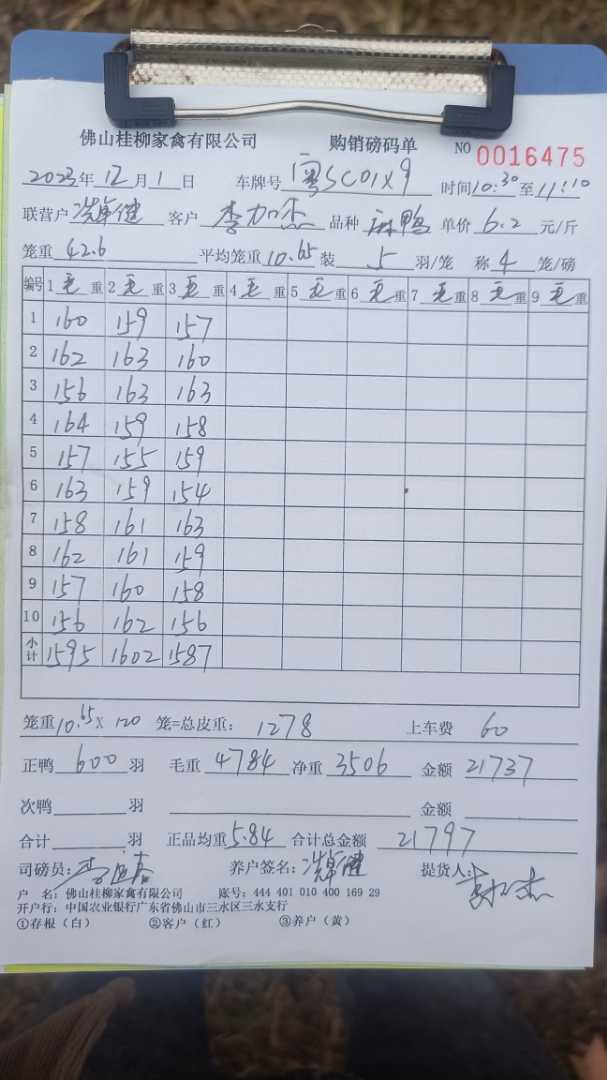 佛山桂柳家禽有限公司 购销磅码单 NO 0016475
2023年12月1日 车牌号 粤SC01X9 时间10:30至11:10
联营户 冼卓健 客户 李加杰 品种 麻鸭 单价 6.2 元/斤
笼重 42.6 平均笼重 10.65 装 5 羽/笼 称 4 笼/磅
编号 1毛重 2毛重 3毛重 4毛重 5毛重 6毛重 7毛重 8毛重 9毛重
1 160 159 157
2 162 163 160
3 156 163 163
4 164 159 158
5 157 155 159
6 163 159 154
7 158 161 163
8 162 161 159
9 157 160 158
10 156 162 156
小计 1595 1602 1587
笼重10.65 X 120 笼=总皮重: 1278 上车费 60
正鸭 600 羽 毛重 4784 净重 3506 金额 21737
次鸭 羽 金额
合计 羽 正品均重 5.84 合计总金额 21797
司磅员: 养户签名: 冼卓健 提货人: 李加杰
户 名: 佛山桂柳家禽有限公司 账号: 444 401 010 400 169 29
开户行: 中国农业银行广东省佛山市三水区三水支行
①存根（白） ②客户（红） ③养户（黄）